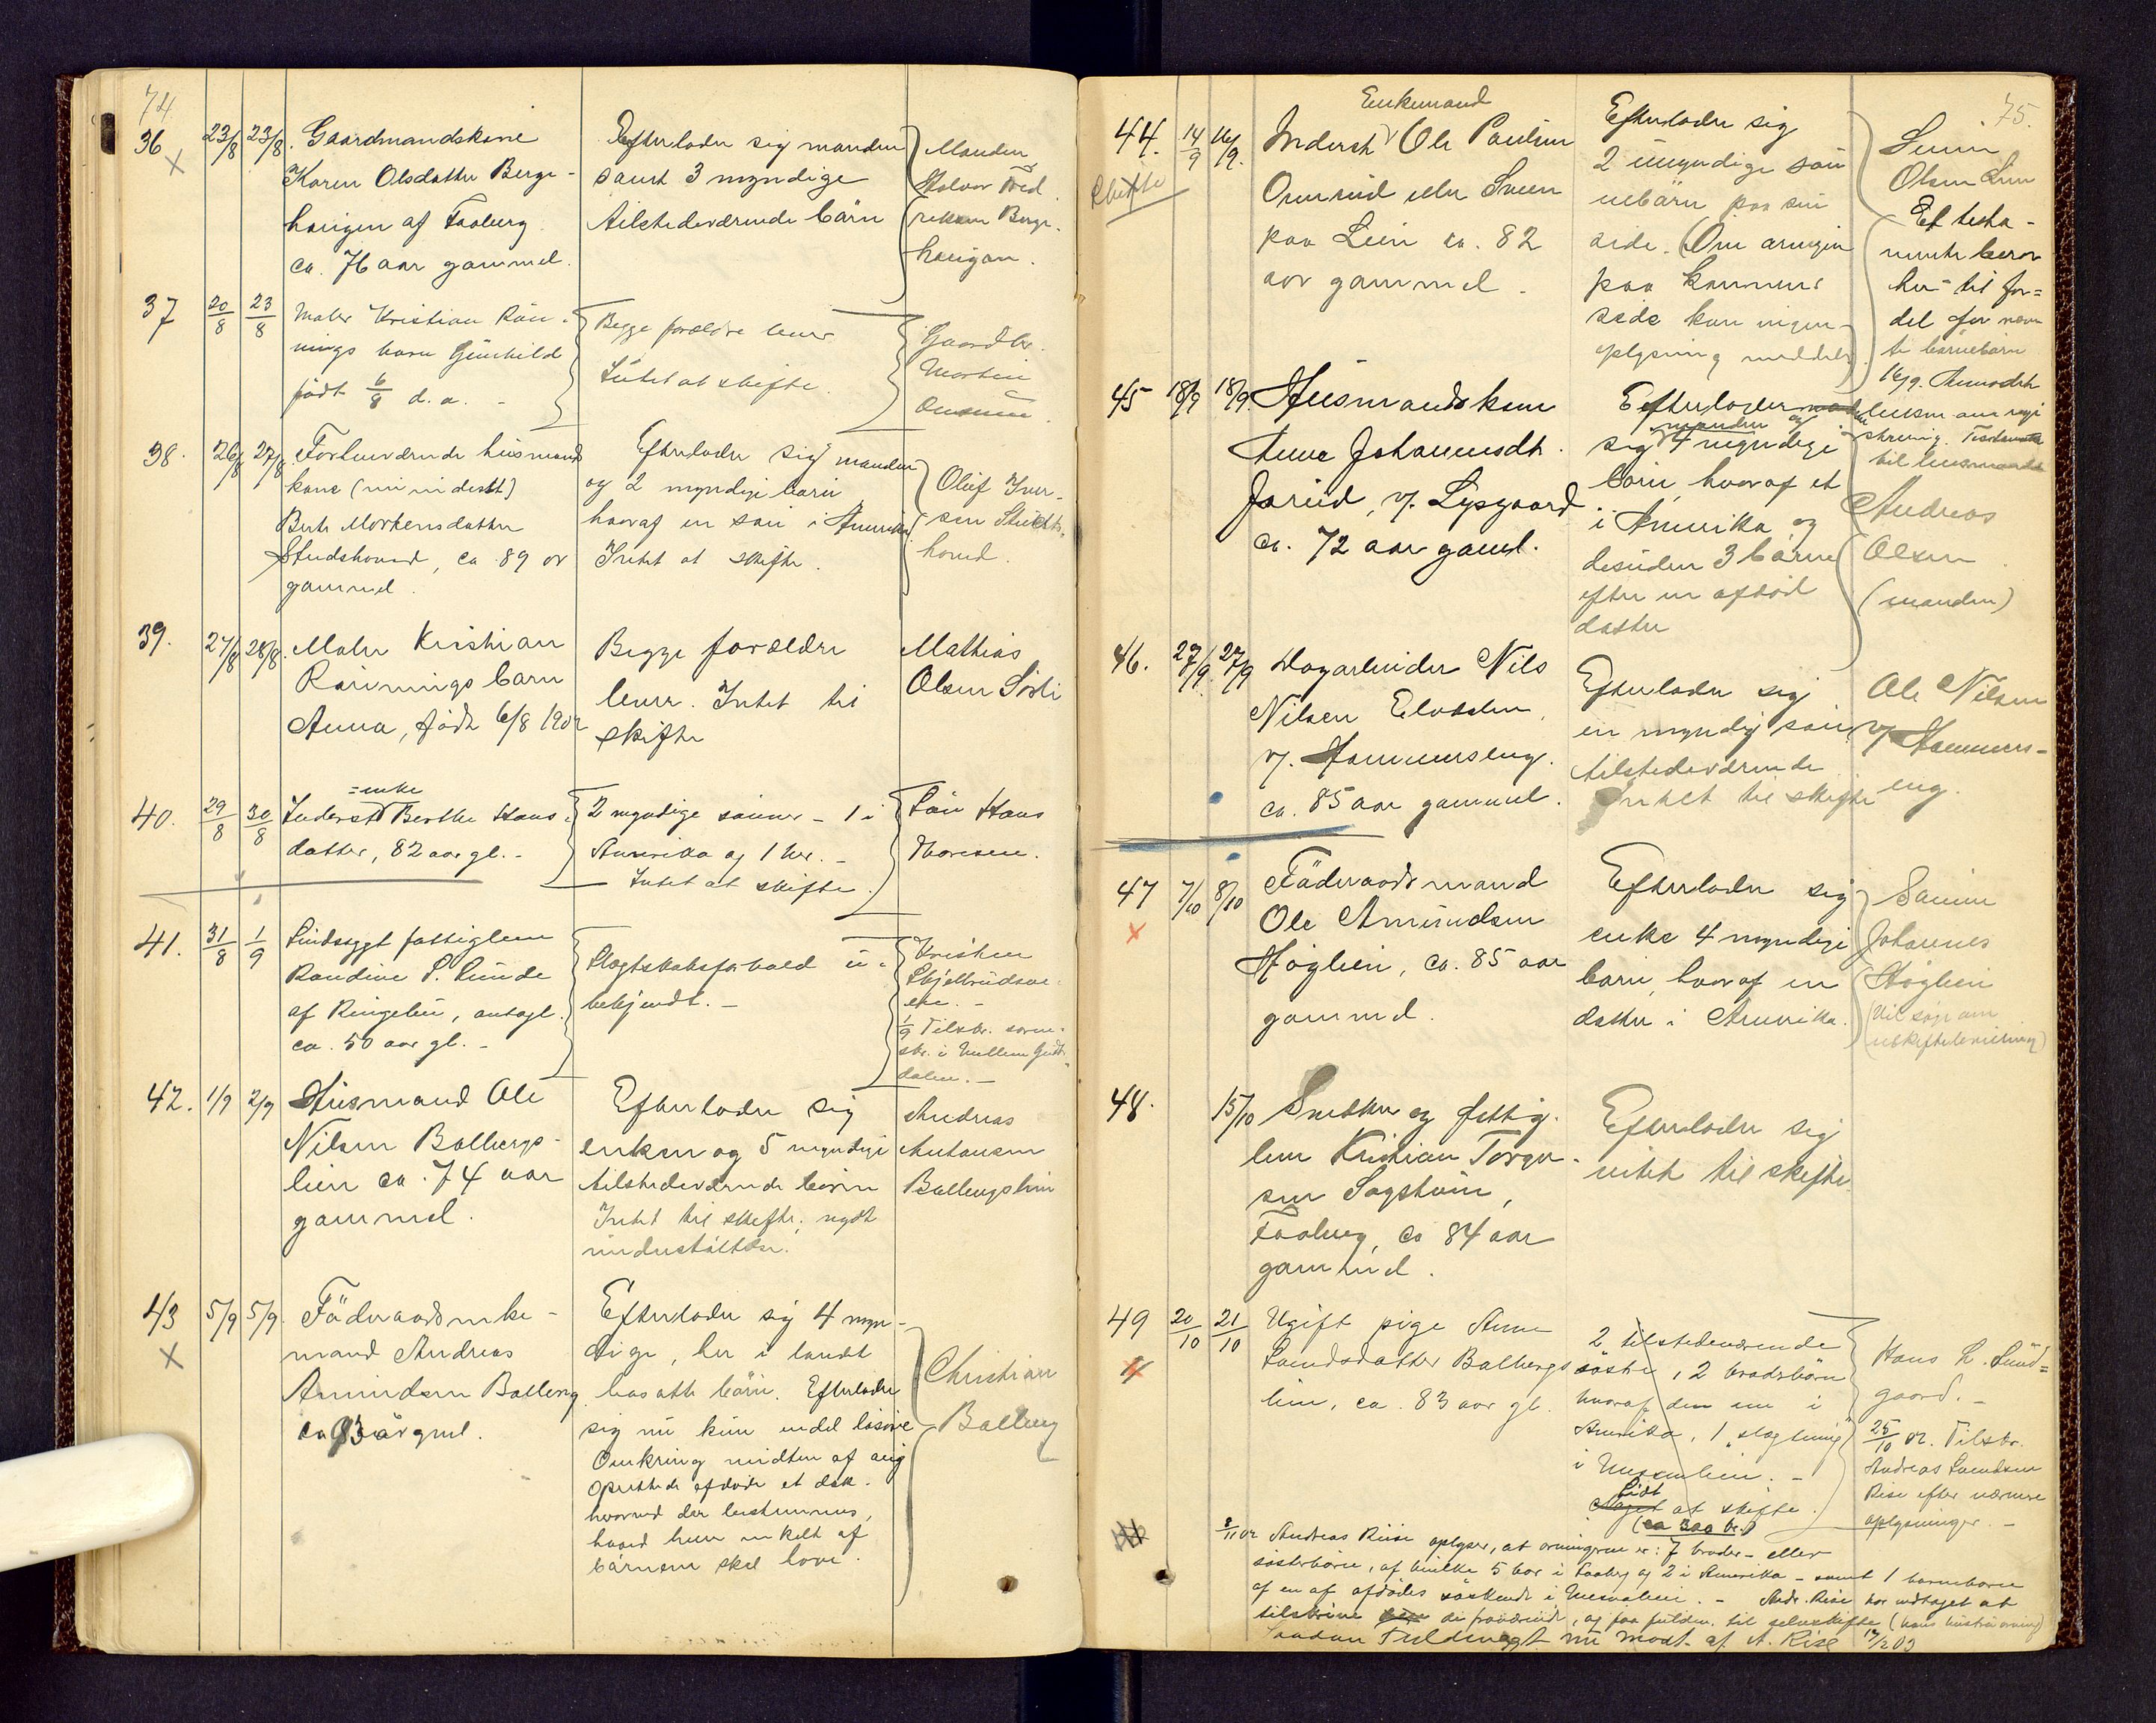 74
36
23/8 23/8
Gaardmandskone
Karen Olsdatter Berge-
haugen af Faaberg
ca. 76 aar gammel.
Efterlader sig manden
samt 3 myndige
tilstedeværende börn
Manden
Halvor Fred
riksen Berge-
haugen.
37
20/8 23/8
Maler Kristian Rön-
nings barn Gunhild
född 6/8 d.a. -
Begge forældre lever
Intet at skifte.
Gaardbr.
Morten
38.
26/8 27/8
Forhenværende husmands
kone
Berte Mortensdatter
Studshoved, ca 89 år
gammel.
Efterlader sig manden
og 2 myndige børn
hvoraf en sön i Amerika
Intet at skifte.
Oluf Iver-
sen
hoved.
39.
27/8 28/8.
Maler Kristian
Rönnings barn
Anna, född 6/8 1902
Begge forældre
lever. Intet til
skifte
Mathias
Olsen
40.
29/8 30/8
=enke
Inderst Berthe Hans-
datter, 82 aar gl. -
2 myndige sönner - 1 i
Amerika og 1 her. -
Intet at skifte.
Sön Hans
Thoresen.
41.
31/8 1/9
Sindssygt fattiglem
Randine P. Lunde
af Ringebu, antagl.
ca. 50 aar gl. -
Slagtskabsforhold u-
bekjendt. -
Kristen
1/9 Tilskr. soren-
skr. i Mellem Gudb.
dalen. -
42.
1/9 2/9
Husmand Ole
Nilsen Balbergs-
lien ca. 74 aar
gammel.
Efterlader sig
enken og 5 myndige
tilstedeværende börn
Intet til skifte; nydt
understötten.
Andreas
Antonsen
Balbergslien
43
5/9 5/9.
Föderaadsenke-
mand Andreas
Amundsen Balberg
ca 83 år gml.
Efterlader sig 4 myn-
dige, her i landet
bosatte börn. Efterlader
sig nu kun endel lösöre
Omkring midten af aug
oprettede afdöde et dok.
hvorved der bestemmes,
hvad hver enkelt af
börnene skal have.
Christian
Balberg
75.
44.
14/9 16/9.
Skifte
Enkemand
Inderst Ole Paulsen
Omrud eller Sveen
paa Lien ca. 82
aar gammel.
Efterlader sig
2 umyndige sön
nebörn paa sin
side. (Om arvingen
paa konens
side kan ingen
oplysning meddeles.
Olsen Lien
Et testa-
mente beror
her til for=
del for næv
te barnebarn
16/9. Anmodet
lensm. om regi
strering. Testamente
til lensmanden
45
18/9 18/9.
Husmandskone
Anne Johannesdt.
Jörud, v. Lysgaard
ca. 72 aar gaml.
Efterlader
manden og
sig 4 myndige
börn, hvoraf et
i Amerika og
desuden 3 börn
efter en afdöd
datter
Andreas
Olsen
(manden)
46.
27/9 27/9
Dagarbeider Nils
Nilsen
v. Hammerseng.
ca. 85 aar gammel.
Efterlader sig
en myndig sön
tilstedeværende
Intet til skifte
Ole Nilsen
v. Hammers-
eng.
47
7/10 8/10
Föderaadsmand
Ole Amundsen
Höglien, ca. 85 aar
gammel.
Efterlader sig
enke 4 myndige
börn, hvoraf en
datter i Amerika.
Sönnen
Johannes
Höglien
(Vil söge om
uskiftebevilling)
48.
15/10
Snedker og fattig-
lem Kristian Torger-
sen Sagstuen,
Faaberg, ca 84 aar
gammel.
Efterlader sig
intet til skifte
49
20/10 21/10
Ugift pige Anne
Svendsdatter Balbergs
lien, ca. 83 aar gl.
2 tilstedeværende
söstre, 2 brodsbörn
hvoraf den ene i
Amerika, 1 slagtning
i Mesnalien. -
Lidt
Noget at skifte.
(ca 300 kr.)
Hans L. Lund=
gaard. -
25/10 02. Tilskr.
Andreas Svendsen
Rise efter nærmere
oplysninger. -
8/11 02 Andreas Riise oplyser, at arvingerne er: 7 broder- eller
sösterbörn, af hvilke 5 bor i Faaberg og 2 i Amerika - samt 1 barnebarn
af en af afdödes söskende i Mesnalien. - Andr. Rise har undtaget at
tilskrive de fraværende, og faa fuldm. til selvskifte (hans hustru arving)
Saadan Fuldmagt nu modt. af A. Rise 17/2 03